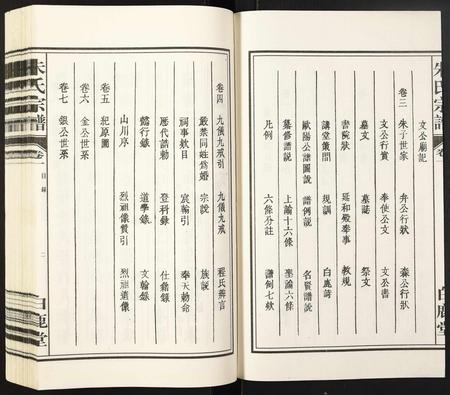 文公廟記
卷三 朱子世家 弁公行狀 森公行狀
文公行實 奉使公文 文公書
墓文 墓誌 祭文
書院狀 延和殿奏事 教規
講堂策問 規訓 白鹿詩
歐陽公譜圖說 譜例說 名賢譜說
纂修譜說 上諭十六條 聖諭六條
凡例 六條分註 譜例七欵
卷四 九儀九戒引 九儀九戒 程氏辨言
嚴禁同姓爲婚 宗說 族說
祠事欵目 宸翰引 奉天勅命
歷代誥勅 登科錄 仕籍錄
懿行錄 道學錄 文翰錄
山川序 烈祖像贊引 烈祖遺像
卷五 纪原圖
卷六 金公世系
卷七 銀公世系
朱氏宗譜
卷一
目錄
二
白鹿堂
朱氏宗譜
卷一
白鹿堂